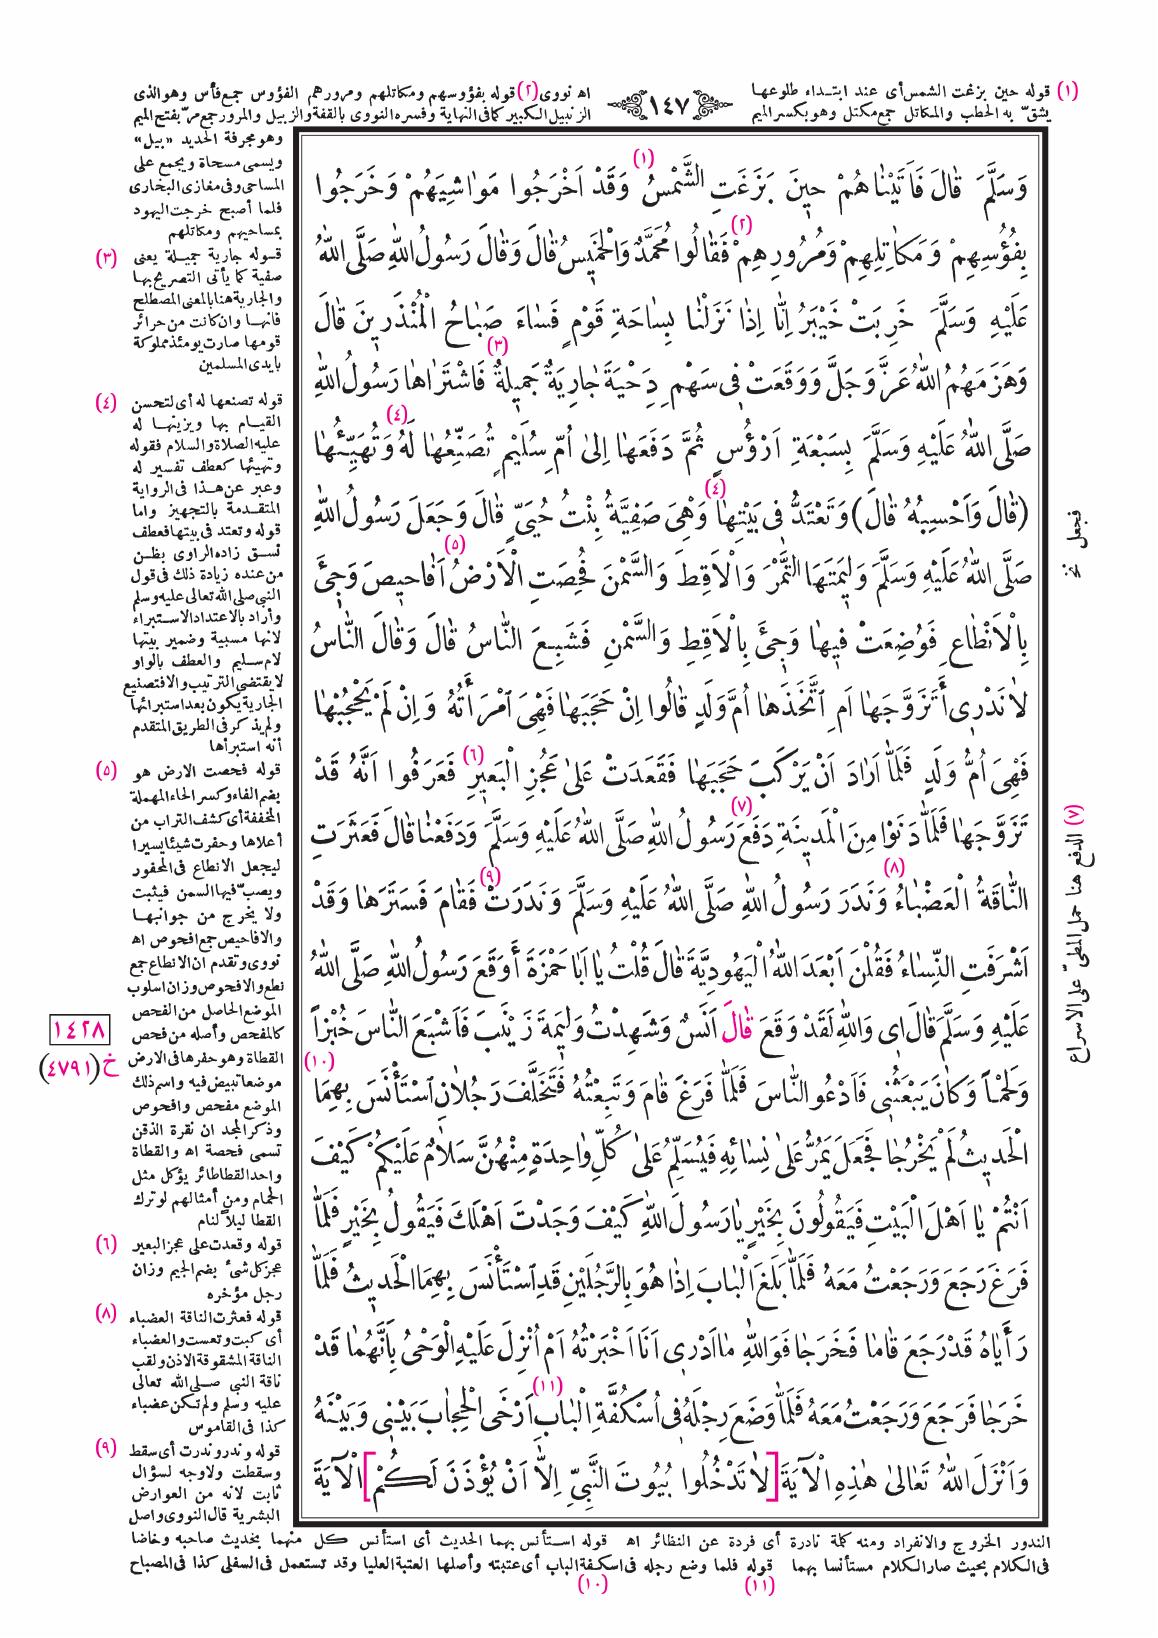 (١) قوله حين بزغت الشمس أى عند ابتداء طلوعها
يشق به الحطب والمكاتل جمع مكتل وهو بكسر الميم
١٤٧
اه نووى (٢) قوله بفؤوسهم ومكاتلهم ومرورهم الفؤوس جمع فأس وهو الذى
الزنبيل الكبير كما فى النهاية وفسره النووى بالقفة والزبيل والمرور جمع مرّ بفتح الميم
وهو مجرفة الحديد «بيل»
ويسمى مسحاة ويجمع على
المساحى وفى مغازى البخارى
فلما أصبح خرجت اليهود
بمساحيهم ومكاتلهم
(٣) قوله جارية جميلة يعنى
صفية كما يأتى التصريح بها
والجارية هنا بالمعنى المصطلح
فانها وان كانت من حرائر
قومها صارت يومئذ مملوكة
بايدى المسلمين
(٤) قوله تصنعها له أى لتحسن
القيام بها ويزينها له
عليه الصلاة والسلام فقوله
وتهيئها كعطف تفسير له
وعبر عن هذا فى الرواية
المتقدمة بالتجهيز واما
قوله وتعتد فى بيتها فعطف
نسق زاده الراوى بظن
من عنده زيادة ذلك فى قول
النبى صلى الله تعالى عليه وسلم
وأراد بالاعتداد الاستبراء
لانها مسبية وضمير بيتها
لام سليم والعطف بالواو
لا يقتضى الترتيب والا فتصنيع
الجارية يكون بعد استبرائها
ولم يذكر فى الطريق المتقدم
أنه استبرأها
(٥) قوله فحصت الارض هو
بضم الفاء وكسر الحاء المهملة
المخففة أى كشف التراب من
أعلاها وحفرت شيئا يسيرا
ليجعل الانطاع فى المحفور
ويصبّ فيها السمن فيثبت
ولا يخرج من جوانبها
والافاحيص جمع افحوص اه
نووى وتقدم ان الانطاع جمع
نطع والافحوص وزان اسلوب
الموضع الحاصل من الفحص
كالمفحص وأصله من فحص
القطاة وهو حفرها فى الارض
موضعا تبيض فيه واسم ذلك
الموضع مفحص وافحوص
وذكر المجد ان نقرة الذقن
تسمى فحصة اه والقطاة
واحد القطا طائر يؤكل مثل
الحمام ومن أمثالهم لو ترك
القطا ليلاً لنام
(٦) قوله وقعدت على عجز البعير
عجز كل شىء بضم الجيم وزان
رجل مؤخره
(٨) قوله فعثرت الناقة العضباء
أى كبت وتعست والعضباء
الناقة المشقوقة الاذن ولقب
ناقة النبى صلى الله تعالى
عليه وسلم ولم تكن عضباء
كذا فى القاموس
(٩) قوله وندر وندرت أى سقط
وسقطت ولا وجه لسؤال
ثابت لانه من العوارض
البشرية قال النووى واصل
وَسَلَّمَ قَالَ فَأَتَيْنَاهُمْ حِينَ بَزَغَتِ الشَّمْسُ (١) وَقَدْ اَخْرَجُوا مَوَاشِيَهُمْ وَخَرَجُوا
بِفُؤُسِهِمْ وَمَكَاتِلِهِمْ وَمُرُورِهِمْ (٢) فَقَالُوا مُحَمَّدٌ وَالْخَمِيسُ قَالَ وَقَالَ رَسُولُ اللهِ صَلَّى اللهُ
عَلَيْهِ وَسَلَّمَ خَرِبَتْ خَيْبَرُ اِنَّا اِذَا نَزَلْنَا بِسَاحَةِ قَوْمٍ فَسَاءَ صَبَاحُ الْمُنْذَرِينَ قَالَ
وَهَزَمَهُمُ اللهُ عَزَّ وَجَلَّ وَوَقَعَتْ فِى سَهْمِ دِحْيَةَ جَارِيَةٌ جَمِيلَةٌ (٣) فَاشْتَرَاهَا رَسُولُ اللهِ
صَلَّى اللهُ عَلَيْهِ وَسَلَّمَ بِسَبْعَةِ اَرْؤُسٍ ثُمَّ دَفَعَهَا اِلىٰ اُمِّ سُلَيْمٍ تُصَنِّعُهَا (٤) لَهُ وَتُهَيِّئُهَا
(قَالَ وَاَحْسِبُهُ قَالَ) وَتَعْتَدُّ فِى بَيْتِهَا (٤) وَهِىَ صَفِيَّةُ بِنْتُ حُيَىٍّ قَالَ وَجَعَلَ رَسُولُ اللهِ
صَلَّى اللهُ عَلَيْهِ وَسَلَّمَ وَلِيمَتَهَا التَّمْرَ وَالْاَقِطَ وَالسَّمْنَ فُحِصَتِ الْاَرْضُ (٥) اَفَاحِيصَ وَجِىءَ
بِالْاَنْطَاعِ فَوُضِعَتْ فِيهَا وَجِىءَ بِالْاَقِطِ وَالسَّمْنِ فَشَبِعَ النَّاسُ قَالَ وَقَالَ النَّاسُ
لَا نَدْرِى أَتَزَوَّجَهَا اَمِ اتَّخَذَهَا اُمَّ وَلَدٍ قَالُوا اِنْ حَجَبَهَا فَهِىَ امْرَأَتُهُ وَاِنْ لَمْ يَحْجُبْهَا
فَهِىَ اُمُّ وَلَدٍ فَلَمَّا اَرَادَ اَنْ يَرْكَبَ حَجَبَهَا فَقَعَدَتْ عَلىٰ عَجُزِ الْبَعِيرِ (٦) فَعَرَفُوا اَنَّهُ قَدْ
تَزَوَّجَهَا فَلَمَّا دَنَوْا مِنَ الْمَدِينَةِ دَفَعَ (٧) رَسُولُ اللهِ صَلَّى اللهُ عَلَيْهِ وَسَلَّمَ وَدَفَعْنَا قَالَ فَعَثَرَتِ
النَّاقَةُ الْعَضْبَاءُ (٨) وَنَدَرَ رَسُولُ اللهِ صَلَّى اللهُ عَلَيْهِ وَسَلَّمَ وَنَدَرَتْ (٩) فَقَامَ فَسَتَرَهَا وَقَدْ
اَشْرَفَتِ النِّسَاءُ فَقُلْنَ اَبْعَدَ اللهُ الْيَهُودِيَّةَ قَالَ قُلْتُ يَا اَبَا حَمْزَةَ أَوَقَعَ رَسُولُ اللهِ صَلَّى اللهُ
عَلَيْهِ وَسَلَّمَ قَالَ اِى وَاللهِ لَقَدْ وَقَعَ قَالَ اَنَسٌ وَشَهِدْتُ وَلِيمَةَ زَيْنَبَ فَاَشْبَعَ النَّاسَ خُبْزاً
وَلَحْماً وَكَانَ يَبْعَثُنِى فَاَدْعُو النَّاسَ فَلَمَّا فَرَغَ قَامَ وَتَبِعْتُهُ فَتَخَلَّفَ رَجُلَانِ اسْتَأْنَسَ بِهِمَا (١٠)
الْحَدِيثُ لَمْ يَخْرُجَا فَجَعَلَ يَمُرُّ عَلىٰ نِسَائِهِ فَيُسَلِّمُ عَلىٰ كُلِّ وَاحِدَةٍ مِنْهُنَّ سَلَامٌ عَلَيْكُمْ كَيْفَ
اَنْتُمْ يَا اَهْلَ الْبَيْتِ فَيَقُولُونَ بِخَيْرٍ يَا رَسُولَ اللهِ كَيْفَ وَجَدْتَ اَهْلَكَ فَيَقُولُ بِخَيْرٍ فَلَمَّا
فَرَغَ رَجَعَ وَرَجَعْتُ مَعَهُ فَلَمَّا بَلَغَ الْبَابَ اِذَا هُوَ بِالرَّجُلَيْنِ قَدِ اسْتَأْنَسَ بِهِمَا الْحَدِيثُ فَلَمَّا
رَأَيَاهُ قَدْ رَجَعَ قَامَا فَخَرَجَا فَوَاللهِ مَا اَدْرِى اَنَا اَخْبَرْتُهُ اَمْ اُنْزِلَ عَلَيْهِ الْوَحْىُ بِاَنَّهُمَا قَدْ
خَرَجَا فَرَجَعَ وَرَجَعْتُ مَعَهُ فَلَمَّا وَضَعَ رِجْلَهُ فِى اُسْكُفَّةِ الْبَابِ (١١) اَرْخَى الْحِجَابَ بَيْنِى وَبَيْنَهُ
وَاَنْزَلَ اللهُ تَعَالىٰ هٰذِهِ الْآيَةَ [لَا تَدْخُلُوا بُيُوتَ النَّبِىِّ اِلَّا اَنْ يُؤْذَنَ لَكُمْ] الْآيَةَ
فجعل نخ
(٧) الدفع هنا حمل المطىّ على الاسراع
١٤٢٨
خ (٤٧٩١)
الندور الخروج والانفراد ومنه كلمة نادرة أى فردة عن النظائر اه قوله استأنس بهما الحديث أى استأنس كل منهما بحديث صاحبه وخاضا
فى الكلام بحيث صار الكلام مستأنسا بهما قوله فلما وضع رجله فى اسكفة الباب أى عتبته وأصلها العتبة العليا وقد تستعمل فى السفلى كذا فى المصباح
(١١) (١٠)